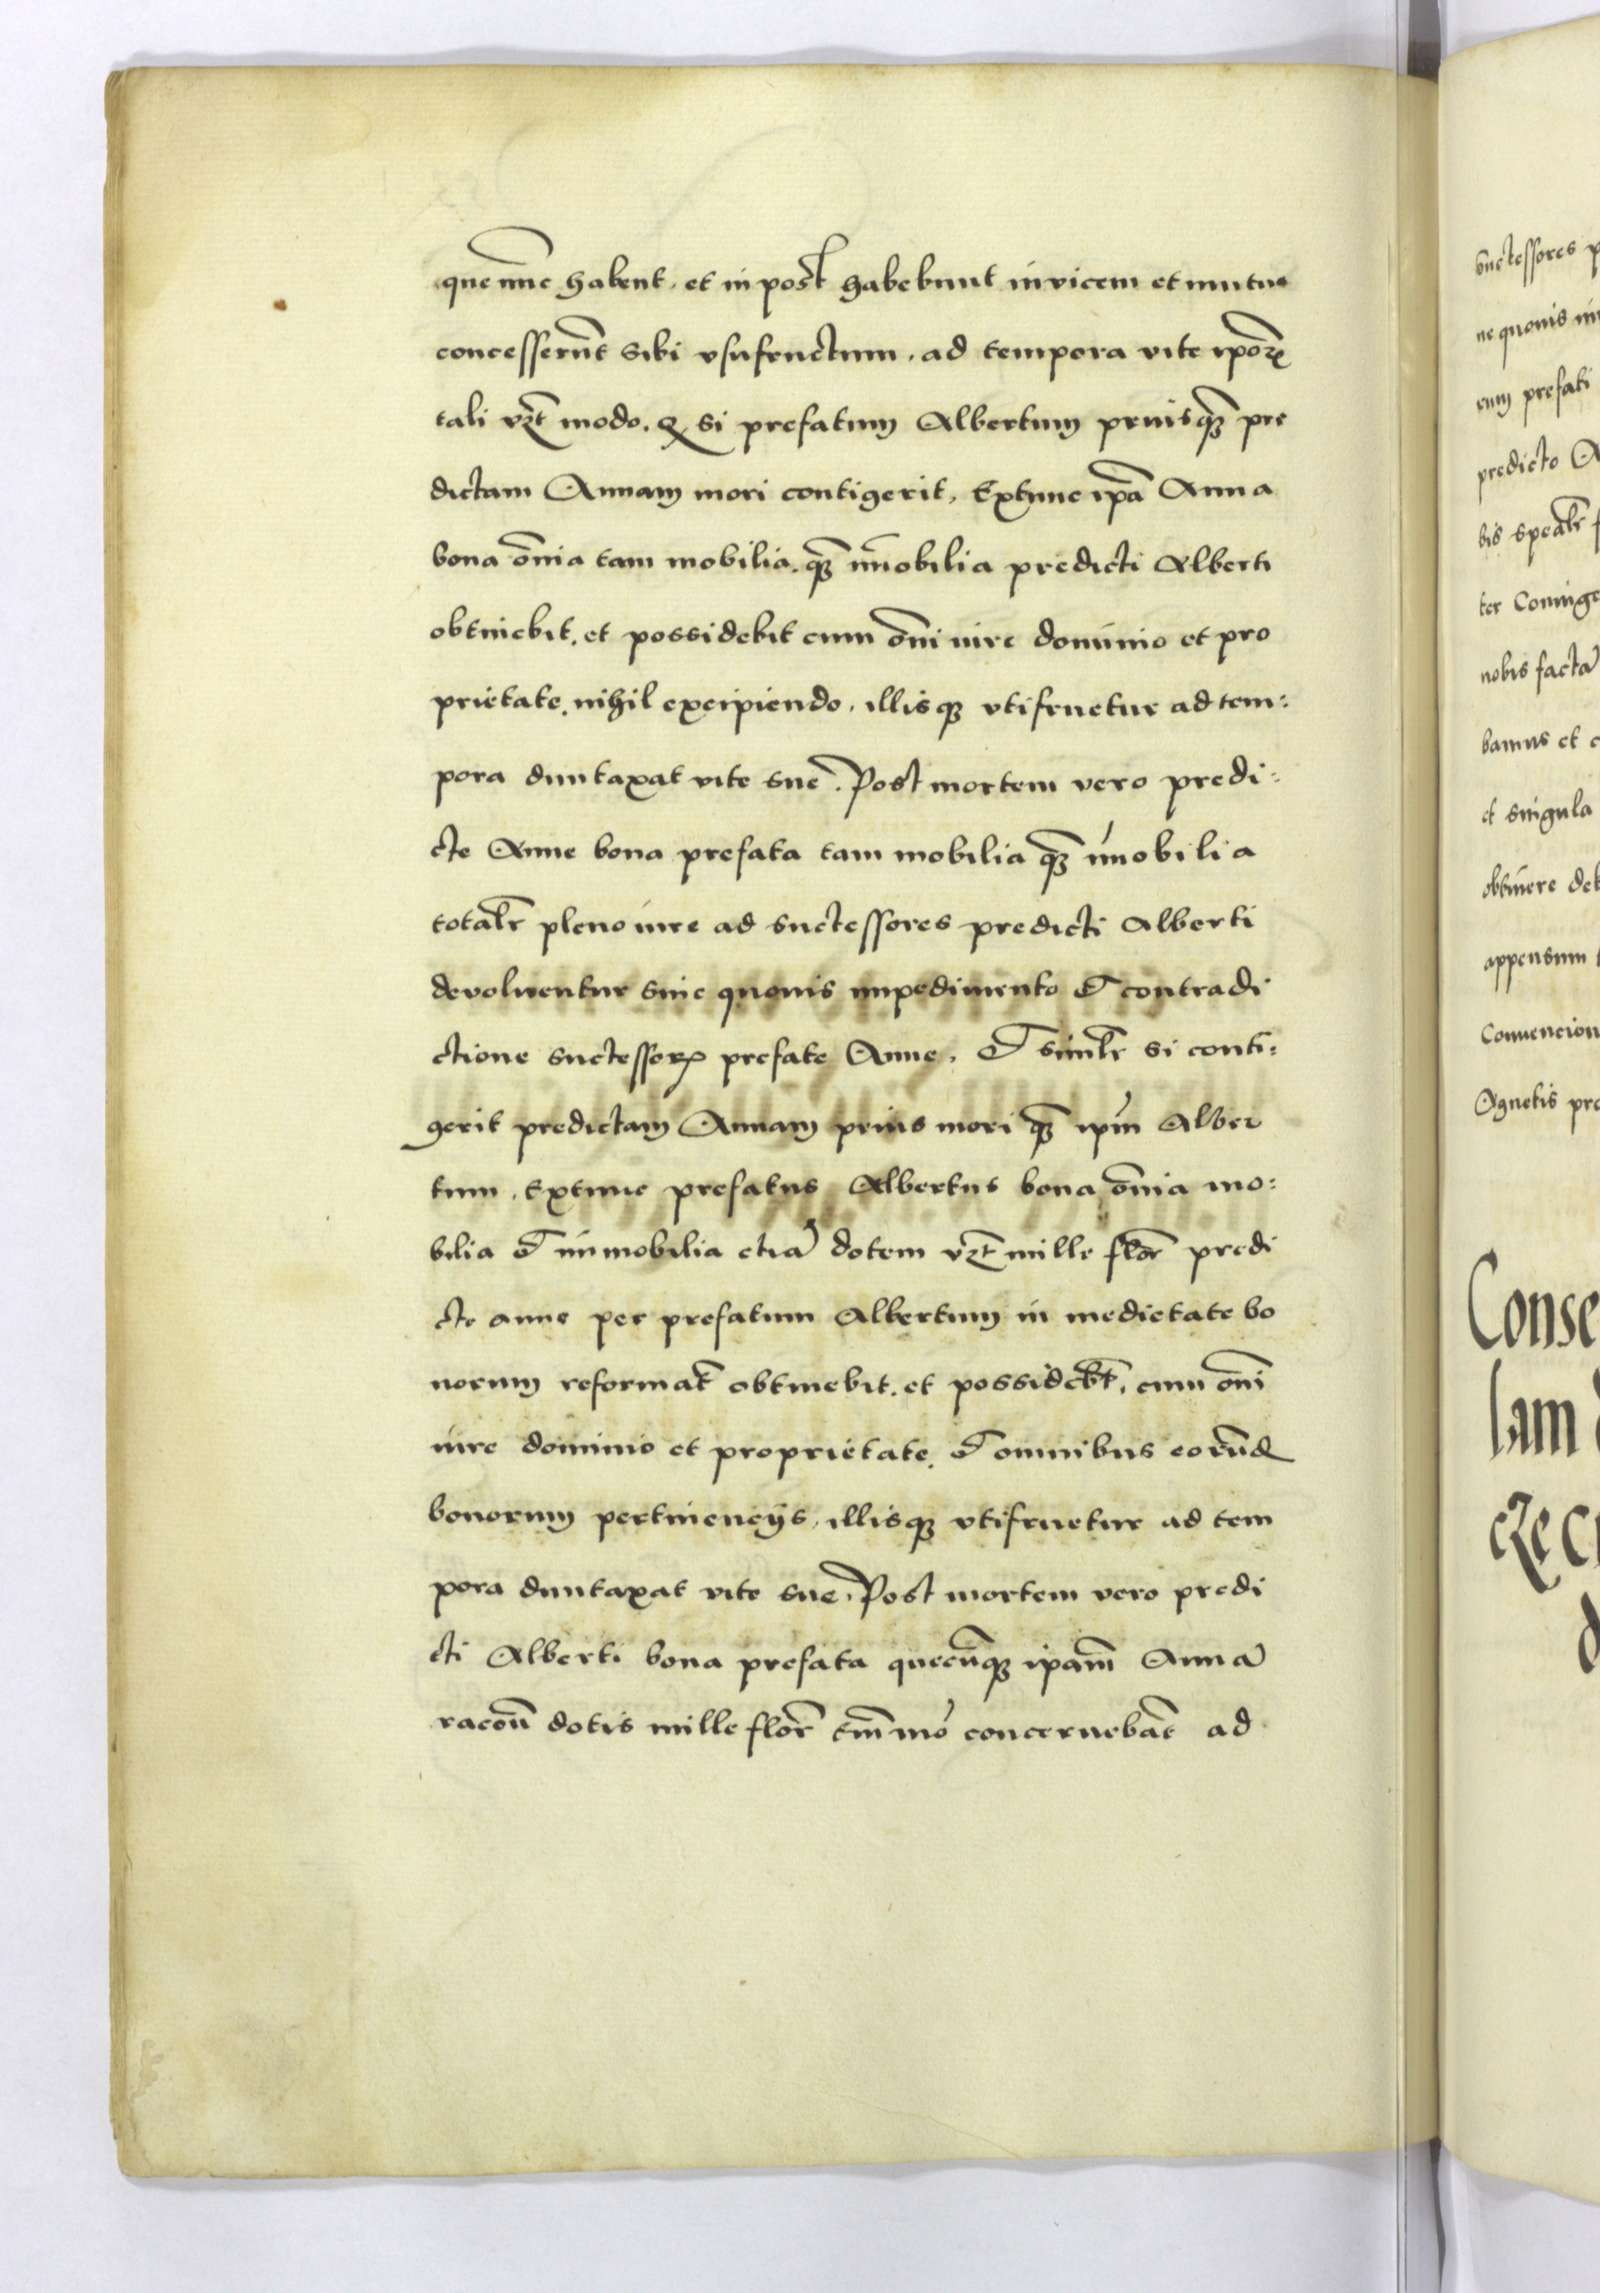 que nūc habent, et in post̄ habebunt invicem et mutuo
concesserūt sibi vsufructum, ad tempora vite ip̄oꝝ
tali vꝫt modo. ꝙ si prefatum Albertum priusqꝫ pre
dictam Annam mori contigerit, Extunc ip̄a Anna
bona om̄ia tam mobilia. qꝫ im̄obilia predicti Alberti
obtinebit. et possidebit cum om̄i iure dominio et pro
prietate. nihil excipiendo. illisqꝫ vtifruetur ad tem:
pora duntaxat vite sue. Post mortem vero predi:
cte Anne bona prefata tam mobilia qꝫ im̄obilia
totalr̄ pleno iure ad suctessores predicti Alberti
devoluentur sine quouis impedimento et contradi
ctione suctessoꝝ prefate Anne. Et similr̄ si conti:
gerit predictam Annam prius mori qꝫ ip̄m Alber
tum. Extunc prefatus Albertus bona om̄ia mo:
bilia et immobilia etiā dotem vꝫt mille flor̄ predi
cte anne per prefatum Albertum in medietate bo
norum reformat̄ obtinebit. et possidebt̄, cum om̄i
iure dominio et proprietate. et omnibus eorūd
bonorum pertinencijs, illisqꝫ vtifruetur ad tem
pora duntaxat vite sue. Post mortem vero predi
cti Alberti bona prefata quecūqꝫ ipam̄ Annā
racōū dotis mille flor̄ tm̄mō concernebāt ad
suctessores p
ne quouis im
rum prefati
predicto A
bis spealr̄
ter Coniuge
nobis factā
bamus et c
et singula
obtinere deb
appensum
Conuencion
Agnetis pre
Conse
lam
eze
d